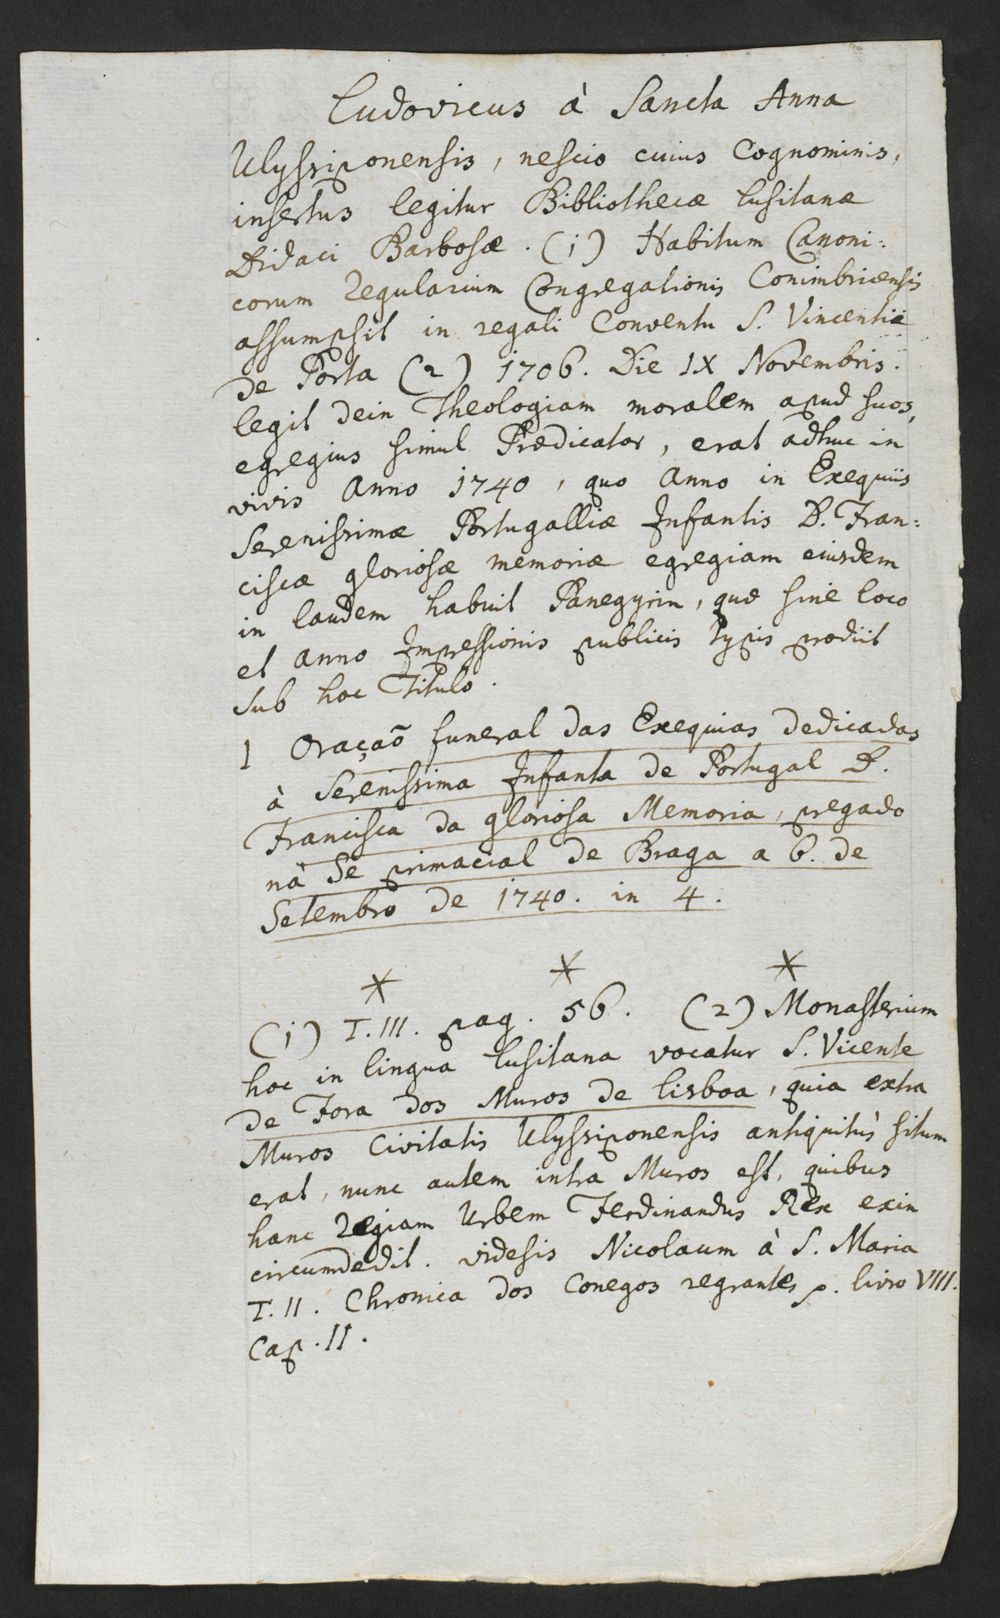 Ludovicus à Sancta Anna
Ulyssiponensis, nescio cuius Cognominis,
insertus legitur Bibliothecæ Lusitanæ
Didaci Barbosæ. (1) Habitum Canoni:
corum Regularium Congregationis Conimbricensis
assumpsit in regali Conventu S. Vincentii
de Porta (2) 1706. Die IX Novembris.
legit dein Theologiam moralem apud suos,
egregius simul Prædicator, erat adhuc in
vivis Anno 1740, quo Anno in Exequiis
Serenissimæ Portugalliæ Infantis D. Fran:
ciscæ gloriosæ memoriæ egregiam eiusdem
in laudem habuit Panegyrin, quæ sine loco
et anno Impressionis publicis typis prodiit
sub hoc Titulo.
1 Oraçaõ funeral das Exequias dedicadas
à Serenissima Infanta de Portugal D.
Francisca da gloriosa Memoria, pregado
nà Se primacial de Braga a 6. de
Setembro de 1740. in 4.
* * *
(1) T. III. pag. 56. (2) Monasterium
hoc in lingua Lusitana vocatur S. Vicente
de Fora dos Muros de Lisboa, quia extra
Muros Civitatis Ulyssiponensis antiquitùs situm
erat, nunc autem intra Muros est, quibus
hanc Regiam Urbem Ferdinandus Rex exin
circumdedit. videsis Nicolaum à S. Maria
T. II. Chronica dos Conegos regrantes p. livro VIII.
Cap. II.